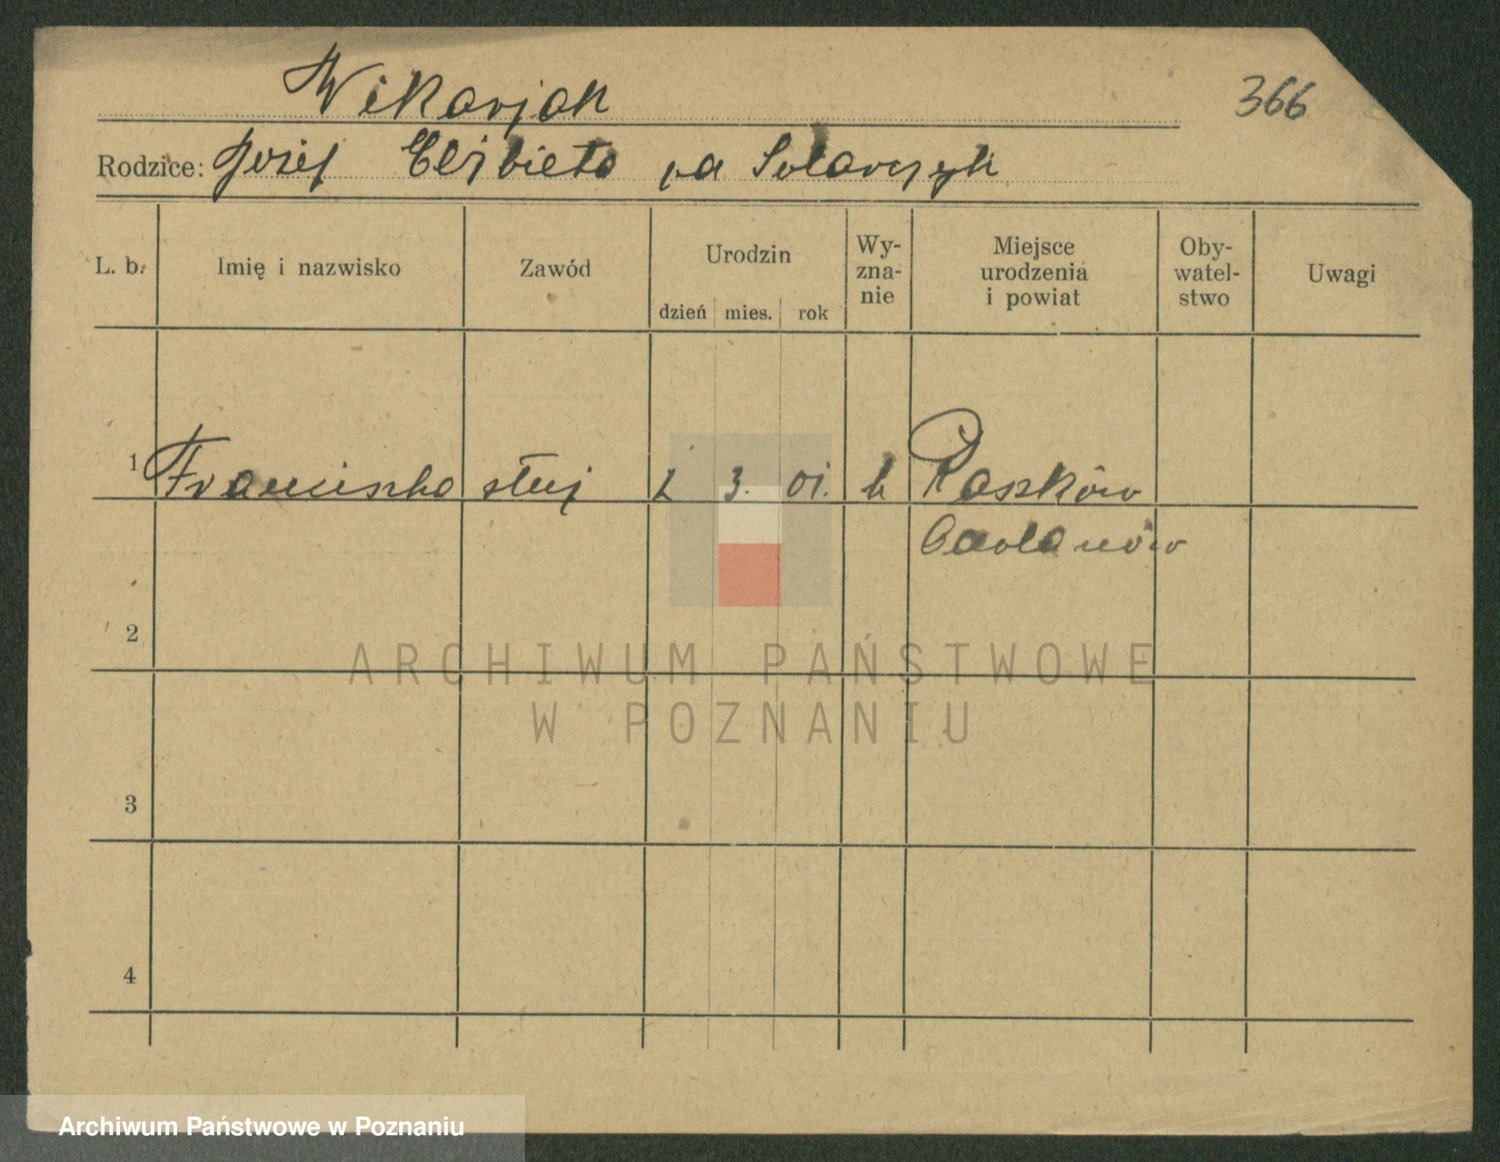 Wikarjak
366
Rodzice: Józef Elżbieta Solarczyk
L. b. Imię i nazwisko Zawód Urodzin Wyznanie Miejsce urodzenia i powiat Obywatelstwo Uwagi
dzień mies. rok
1 Franciszka służ 3. 01. k Raszków
2
3
4
ARCHIWUM PAŃSTWOWE
W POZNANIU
Archiwum Państwowe w Poznaniu